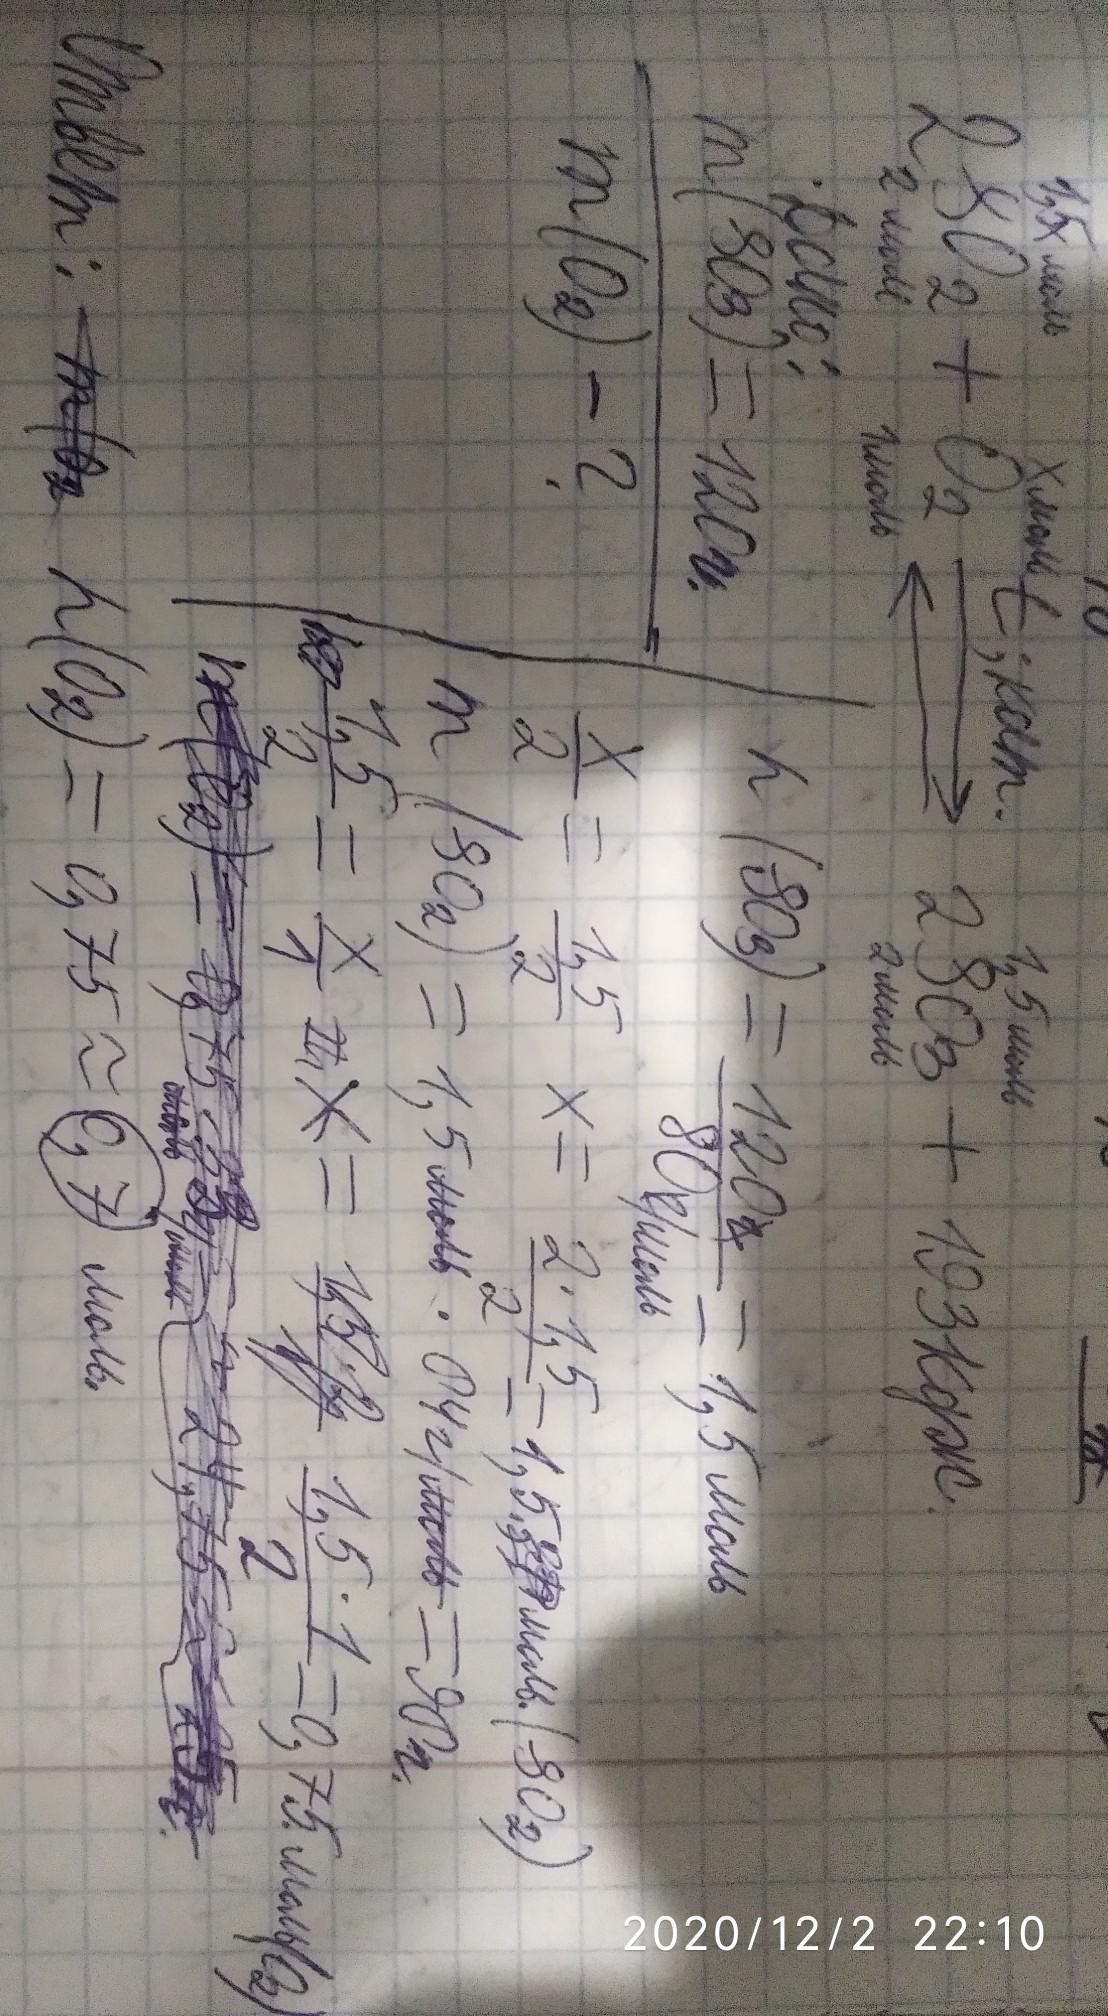 1,5x моль x моль t, кат. 1,5 моль
2SO2 + O2 ⇄ 2SO3 + 193 Кдж.
2 моль 1 моль 2 моль
Дано:
m(SO3) = 120г.
m(O2) - ?
n(SO3) = 120г / 80г/моль = 1,5 моль
x/2 = 1,5/2 x = 2·1,5/2 = 1,5 моль. (SO2)
m(SO2) = 1,5 моль · 64г/моль = 90г.
1,5/2 = x/1 x = 1,5·1/2 = 0,75 моль(O2)
Ответ: n(O2) = 0,75 ≈ 0,7 моль.
2020/12/2 22:10